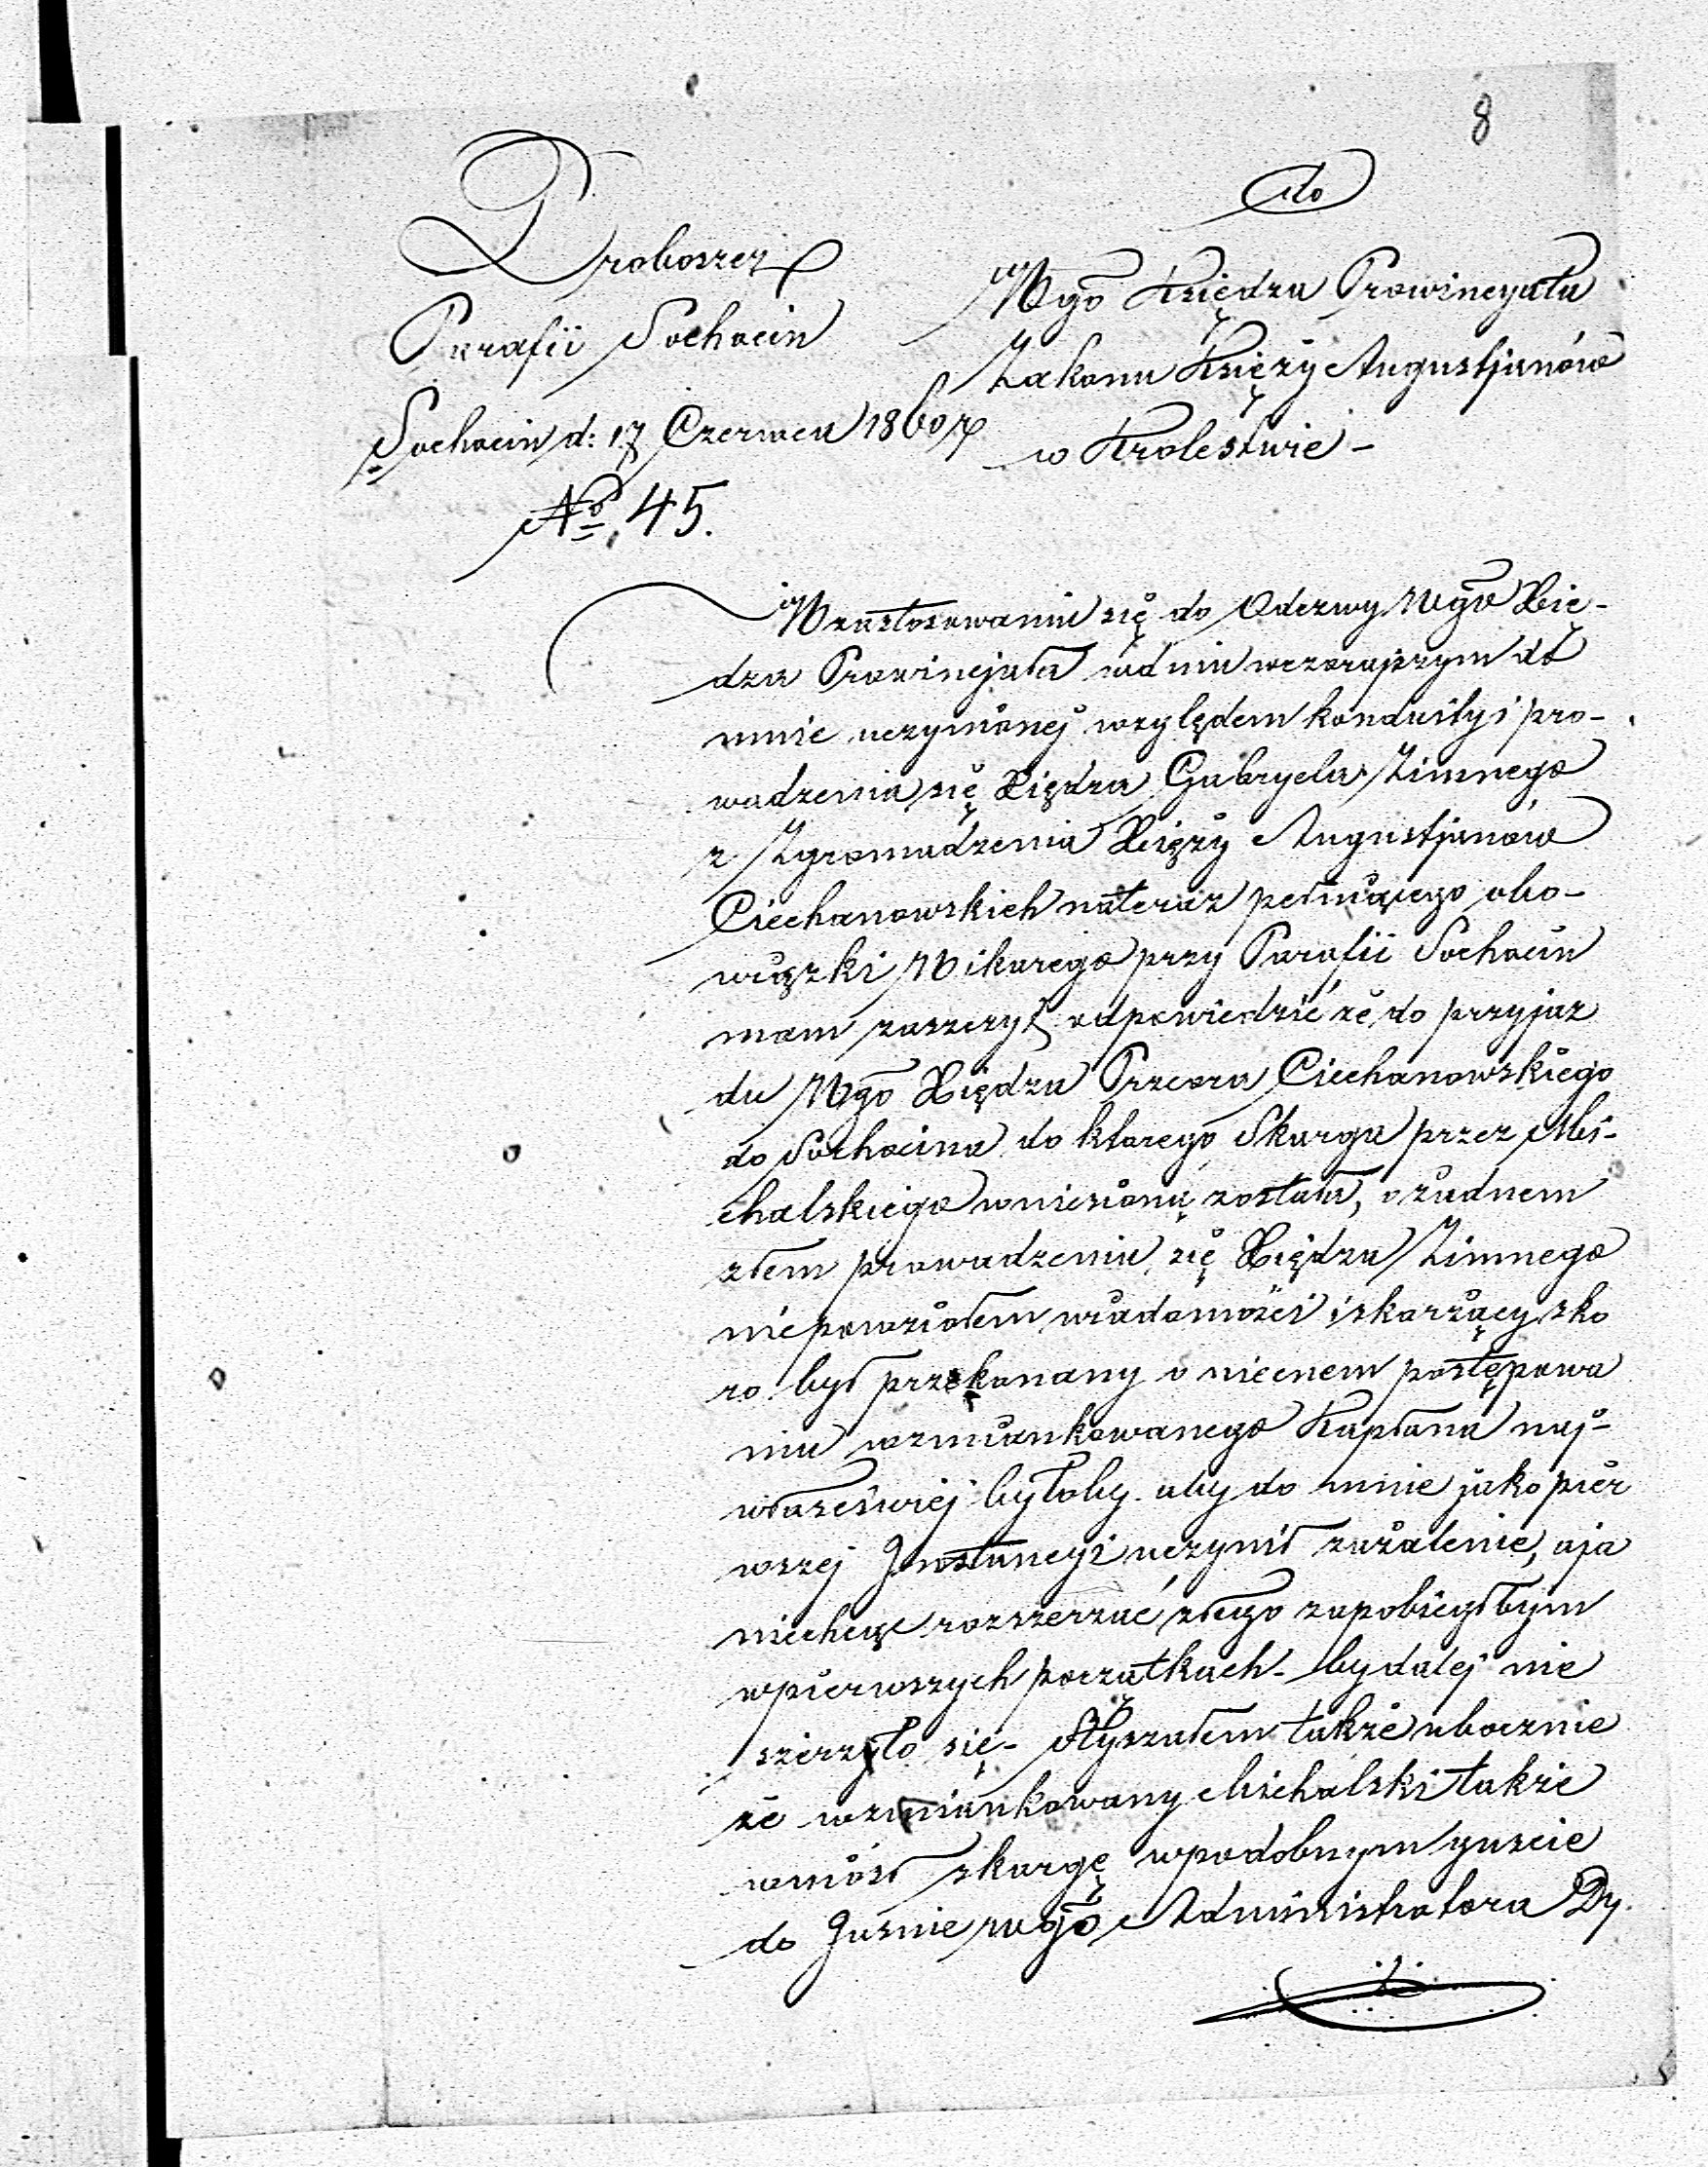 8
Proboszcz
Parafii Sochocin
Sochocin d: 17 Czerwca 1860 r
№ 45.
do
Wgo Księdza Prowincyała
Zakonu Księży Augustjanów
w Krolestwie -
W zastosowaniu się do Odezwy Wgo Xię-
dza Prowincjała w dniu wczorajszym do
mnie uczynionej względem konduity i pro-
wadzenia się Xiędza Gabryela Zimnego
z Zgromadzenia Xięży Augustjanów
Ciechanowskich na teraz pełniącego obo-
wiązki Wikarego przy Parafii Sochocin
mam zaszczyt odpowiedzić że do przyjaz
du Wgo Xiędza Przeora Ciechanowskiego
do Sochocina do ktorego Skarga przez Mi-
chalskiego wniesioną została, o żadnem
złem prowadzeniu się Xiędza Zimnego
nie powziołem wiadomości i skarżący sko
ro był przekonany o niecnem postępowa
niu wzmiankowanego Kapłana naj-
właściwiej byłoby aby do mnie jako pier
wszej Instancyi uczynił zażalenie, a ja
niechcąc rozszerzać złego zapobiegłbym
w pierwszych początkach - by dalej nie
szerzyło się - Słyszałem także ubocznie
że wzmiankowany Michalski także
wniósł skargę w podobnym guscie
do Jasnie Wgo Administratora Dy.